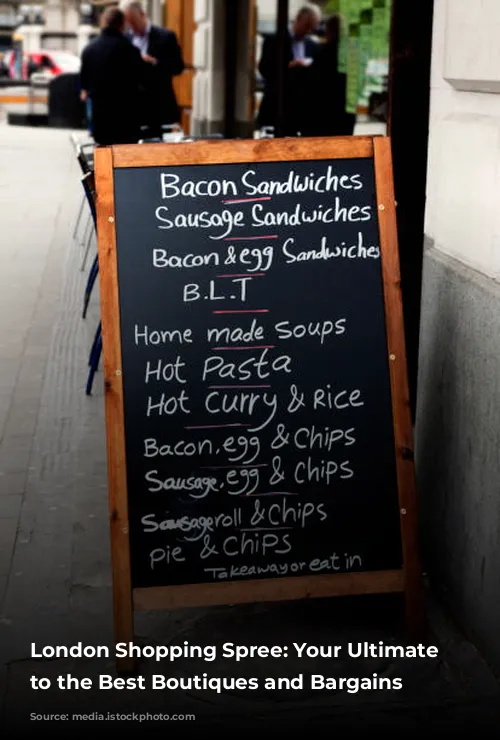 Bacon Sandwiches
Sausage Sandwiches
Bacon & egg Sandwiches
B.L.T
Home made Soups
Hot Pasta
Hot Curry & Rice
Bacon, egg & Chips
Sausage, egg & Chips
Sausageroll & Chips
pie & Chips
Takeaway or eat in
London Shopping Spree: Your Ultimate
to the Best Boutiques and Bargains
Source: media.istockphoto.com